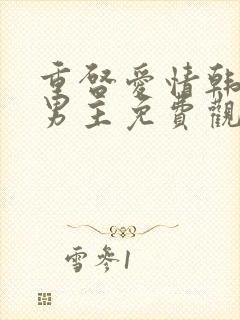 重啓愛情韓
男主免費觀
雪參1